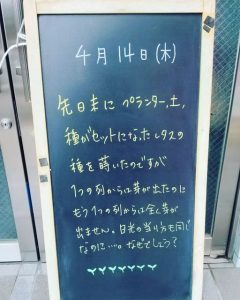 4月14日(木)
先日末に プランター,土,
種がセットになったレタスの
種を蒔いたのですが
1つの列からは芽が出たのに
もう1つの列からは全く芽が
出ません。日光の当り方も同じ
なのに…。なぜでしょう?